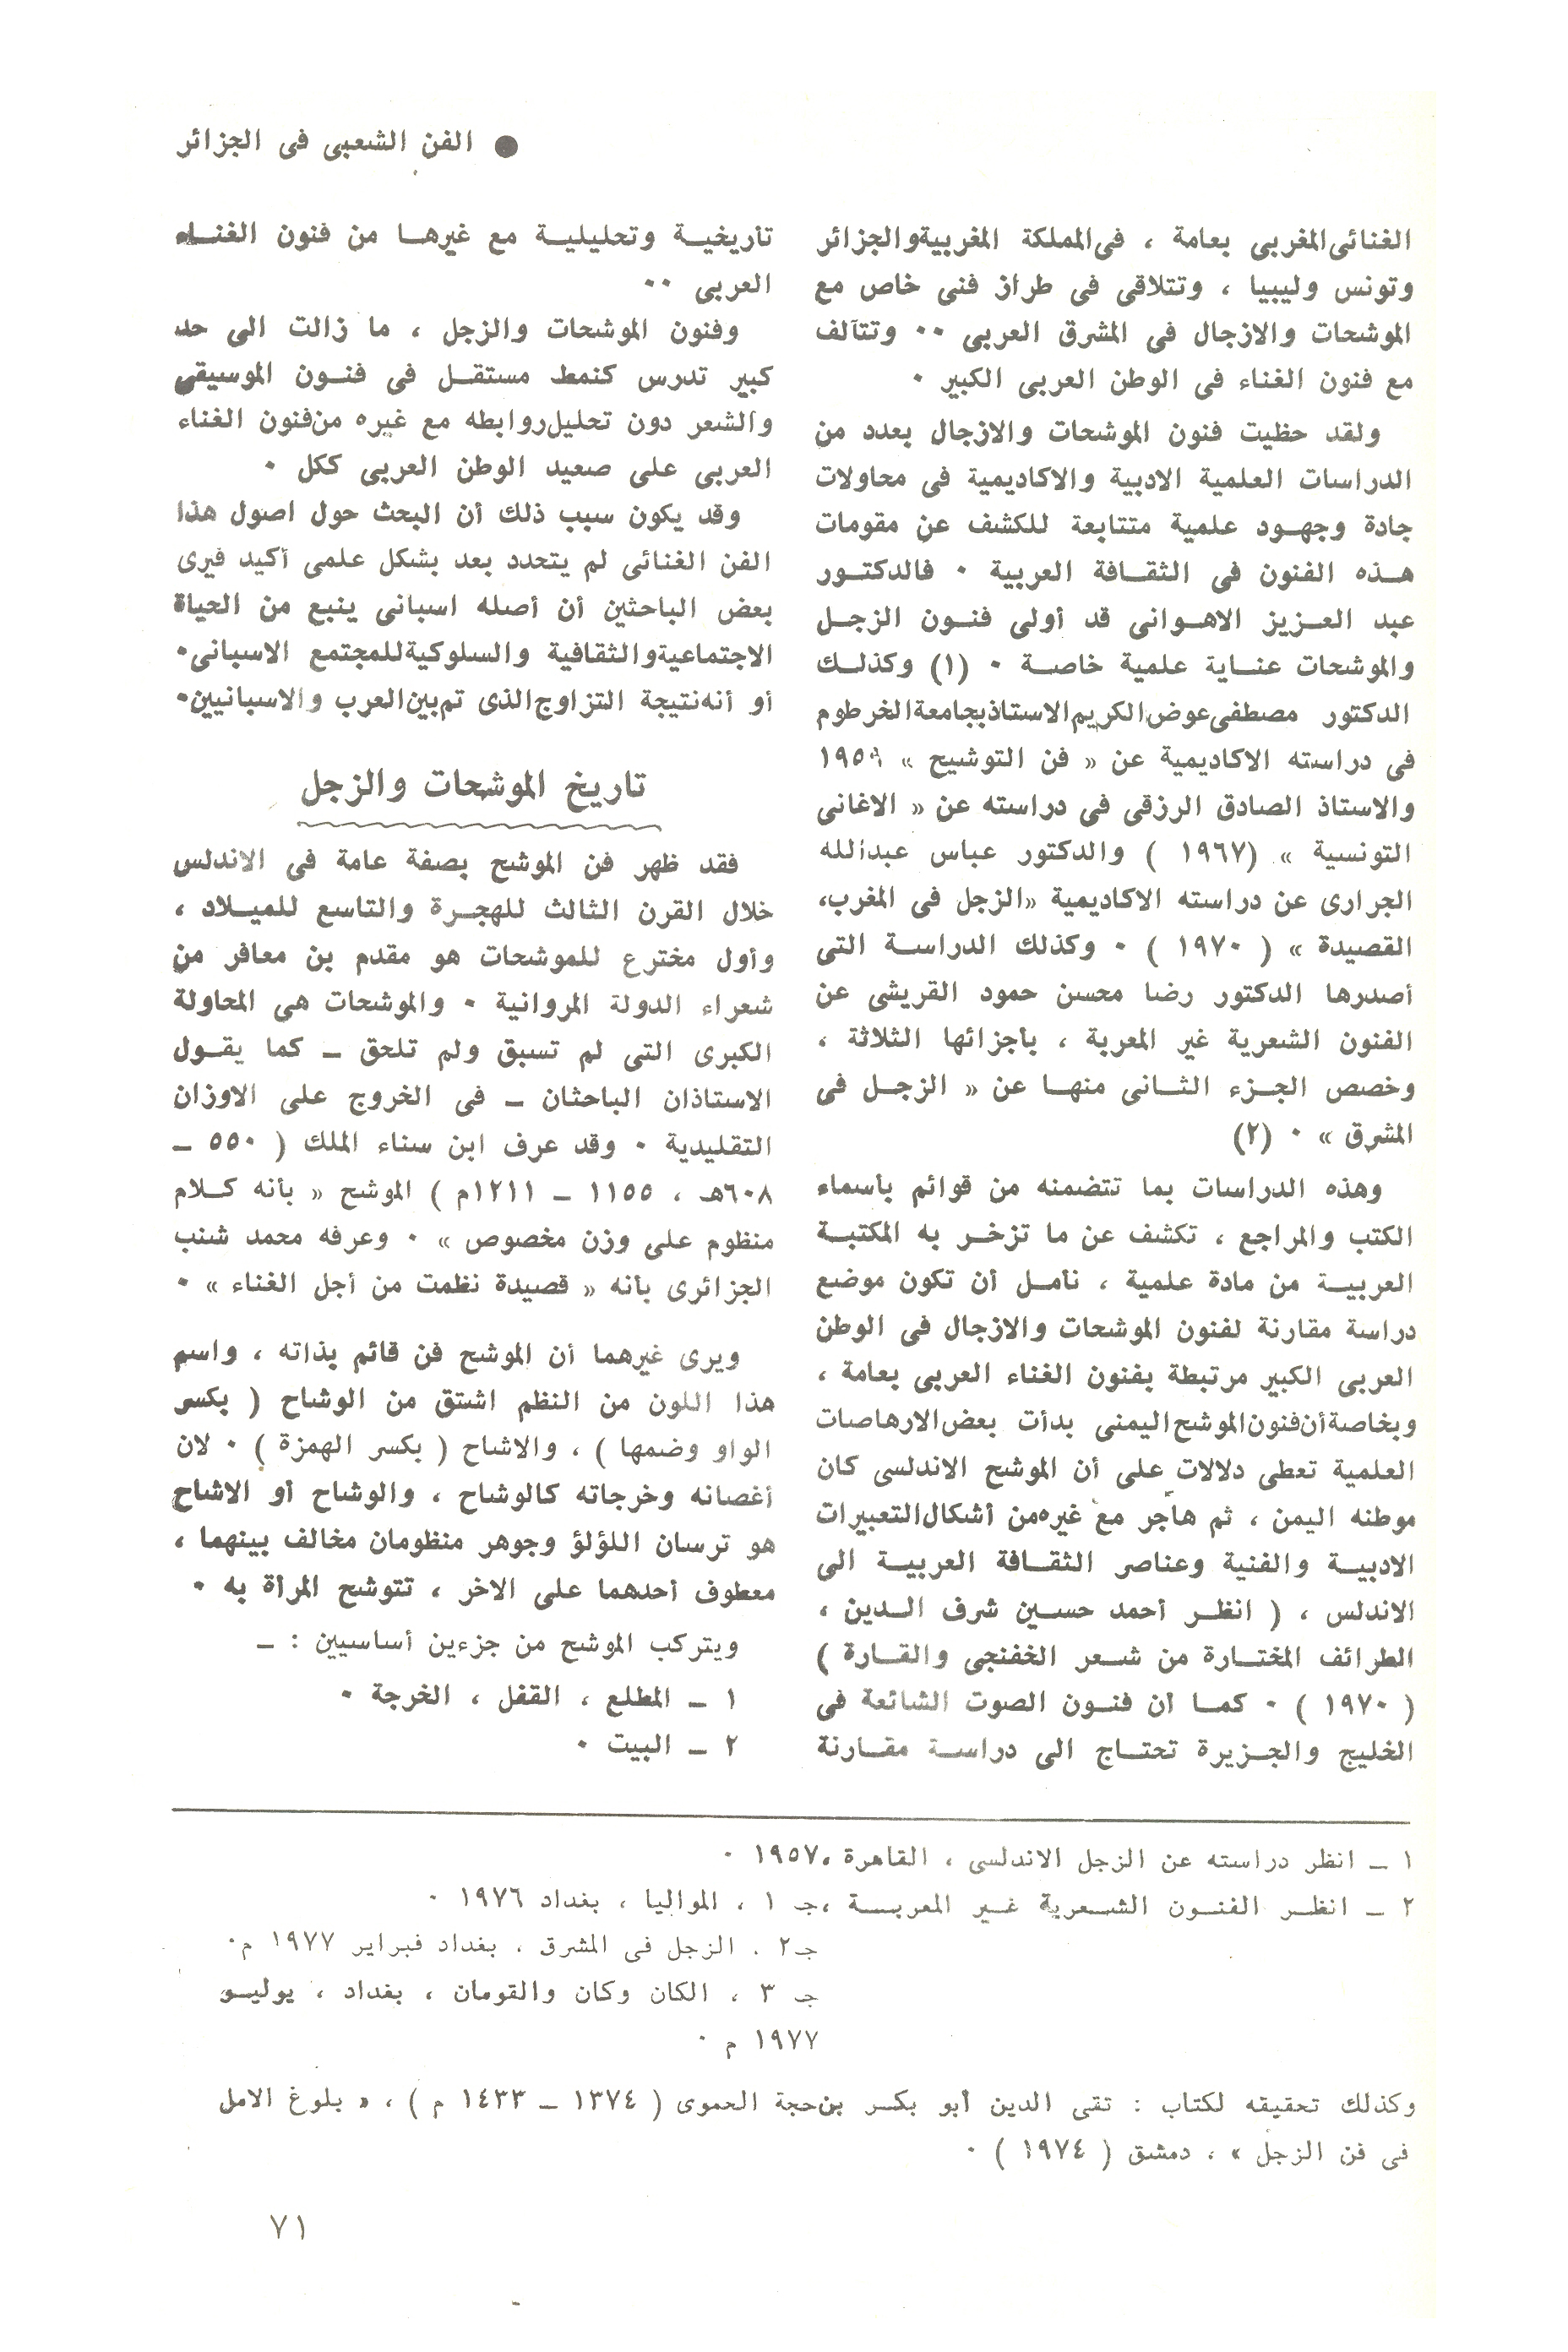 ● الفن الشعبى فى الجزائر
الغنائى المغربى بعامة ، فى المملكة المغربية والجزائر
وتونس وليبيا ، وتتلاقى فى طراز فنى خاص مع
الموشحات والازجال فى المشرق العربى ٠٠ وتتآلف
مع فنون الغناء فى الوطن العربى الكبير ٠
ولقد حظيت فنون الموشحات والازجال بعدد من
الدراسات العلمية الادبية والاكاديمية فى محاولات
جادة وجهود علمية متتابعة للكشف عن مقومات
هذه الفنون فى الثقافة العربية ٠ فالدكتور
عبد العزيز الاهوانى قد أولى فنون الزجل
والموشحات عناية علمية خاصة ٠ (١) وكذلك
الدكتور مصطفى عوض الكريم الاستاذ بجامعة الخرطوم
فى دراسته الاكاديمية عن « فن التوشيح » ١٩٥٩
والاستاذ الصادق الرزقى فى دراسته عن « الاغانى
التونسية » (١٩٦٧ ) والدكتور عباس عبدالله
الجرارى عن دراسته الاكاديمية «الزجل فى المغرب،
القصيدة » ( ١٩٧٠ ) ٠ وكذلك الدراسة التى
أصدرها الدكتور رضا محسن حمود القريشى عن
الفنون الشعرية غير المعربة ، بأجزائها الثلاثة ،
وخصص الجزء الثانى منها عن « الزجل فى
المشرق » ٠ (٢)
وهذه الدراسات بما تتضمنه من قوائم بأسماء
الكتب والمراجع ، تكشف عن ما تزخر به المكتبة
العربية من مادة علمية ، نأمل أن تكون موضع
دراسة مقارنة لفنون الموشحات والازجال فى الوطن
العربى الكبير مرتبطة بفنون الغناء العربى بعامة ،
وبخاصة أن فنون الموشح اليمنى بدأت بعض الارهاصات
العلمية تعطى دلالات على أن الموشح الاندلسى كان
موطنه اليمن ، ثم هاجر مع غيره من أشكال التعبيرات
الادبية والفنية وعناصر الثقافة العربية الى
الاندلس ، ( انظر أحمد حسين شرف الدين ،
الطرائف المختارة من شعر الخفنجى والقارة )
( ١٩٧٠ ) ٠ كما أن فنون الصوت الشائعة فى
الخليج والجزيرة تحتاج الى دراسة مقارنة
تأريخية وتحليلية مع غيرها من فنون الغناء
العربى ٠٠
وفنون الموشحات والزجل ، ما زالت الى حد
كبير تدرس كنمط مستقل فى فنون الموسيقى
والشعر دون تحليل روابطه مع غيره من فنون الغناء
العربى على صعيد الوطن العربى ككل ٠
وقد يكون سبب ذلك أن البحث حول اصول هذا
الفن الغنائى لم يتحدد بعد بشكل علمى أكيد فيرى
بعض الباحثين أن أصله اسبانى ينبع من الحياة
الاجتماعية والثقافية والسلوكية للمجتمع الاسبانى٠
أو أنه نتيجة التزاوج الذى تم بين العرب والاسبانيين٠
تاريخ الموشحات والزجل
فقد ظهر فن الموشح بصفة عامة فى الاندلس
خلال القرن الثالث للهجرة والتاسع للميلاد ،
وأول مخترع للموشحات هو مقدم بن معافر من
شعراء الدولة المروانية ٠ والموشحات هى المحاولة
الكبرى التى لم تسبق ولم تلحق ـ كما يقول
الاستاذان الباحثان ـ فى الخروج على الاوزان
التقليدية ٠ وقد عرف ابن سناء الملك ( ٥٥٠ ـ
٦٠٨هـ ، ١١٥٥ ـ ١٢١١م ) الموشح « بأنه كلام
منظوم على وزن مخصوص » ٠ وعرفه محمد شنب
الجزائرى بأنه « قصيدة نظمت من أجل الغناء » ٠
ويرى غيرهما أن الموشح فن قائم بذاته ، واسم
هذا اللون من النظم اشتق من الوشاح ( بكسر
الواو وضمها ) ، والاشاح ( بكسر الهمزة ) ٠ لان
أغصانه وخرجاته كالوشاح ، والوشاح أو الاشاح
هو ترسان اللؤلؤ وجوهر منظومان مخالف بينهما ،
معطوف أحدهما على الاخر ، تتوشح المرأة به ٠
ويتركب الموشح من جزءين أساسيين : ـ
١ ـ المطلع ، القفل ، الخرجة ٠
٢ ـ البيت ٠
١ ـ انظر دراسته عن الزجل الاندلسى ، القاهرة ،١٩٥٧ ٠
٢ ـ انظر الفنون الشعرية غير المعربة ،جـ ١ ، المواليا ، بغداد ١٩٧٦ ٠
جـ٢ ، الزجل فى المشرق ، بغداد فبراير ١٩٧٧ م٠
جـ ٣ ، الكان وكان والقومان ، بغداد ، يوليو
١٩٧٧ م ٠
وكذلك تحقيقه لكتاب : تقى الدين أبو بكر بن حجة الحموى ( ١٣٧٤ ـ ١٤٣٣ م ) ، « بلوغ الامل
فى فن الزجل » ، دمشق ( ١٩٧٤ ) ٠
٧١